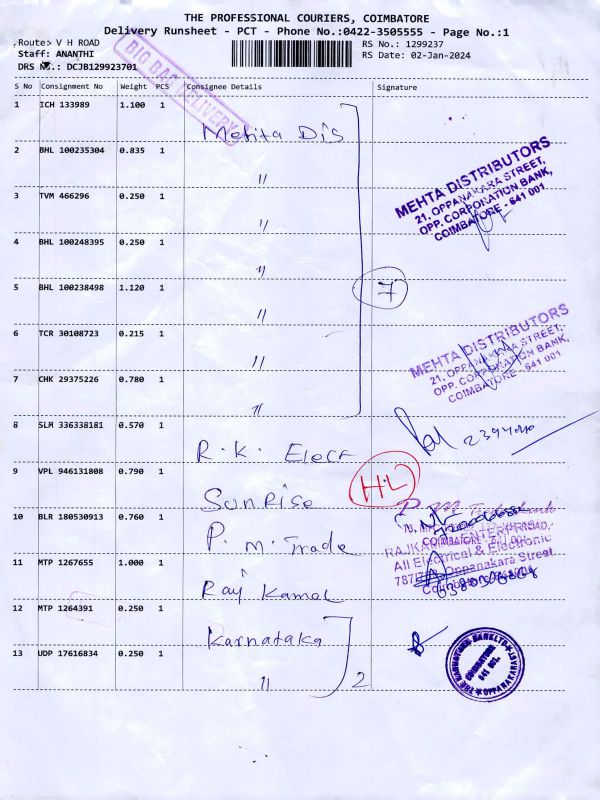 THE PROFESSIONAL COURIERS, COIMBATORE
Delivery Runsheet - PCT - Phone No.:0422-3505555 - Page No.:1
Route> V H ROAD
RS No.: 1299237
Staff: ANANTHI
RS Date: 02-Jan-2024
DRS No.: DCJB129923701
BIG BAG DELIVERY
S No Consignment No Weight PCS Consignee Details Signature
1 ICH 133989 1.100 1
Mehta Dis
2 BHL 100235304 0.835 1
"
MEHTA DISTRIBUTORS
21, OPPANAKARA STREET,
OPP. CORPORATION BANK,
COIMBATORE - 641 001
3 TVM 466296 0.250 1
"
4 BHL 100248395 0.250 1
"
5 BHL 100238498 1.120 1
7
"
6 TCR 30108723 0.215 1
"
MEHTA DISTRIBUTORS
21, OPPANAKARA STREET,
OPP. CORPORATION BANK,
COIMBATORE - 641 001
7 CHK 29375226 0.780 1
"
8 SLM 336338181 0.570 1
R. K. Elect
9 VPL 946131808 0.790 1
H.L
Sunrise
10 BLR 180530913 0.760 1
P. M. Trade
All Electrical & Electronic
Oppanakara Street
11 MTP 1267655 1.000 1
Raj Kamal
12 MTP 1264391 0.250 1
Karnataka
13 UDP 17616834 0.250 1
"
2
COIMBATORE